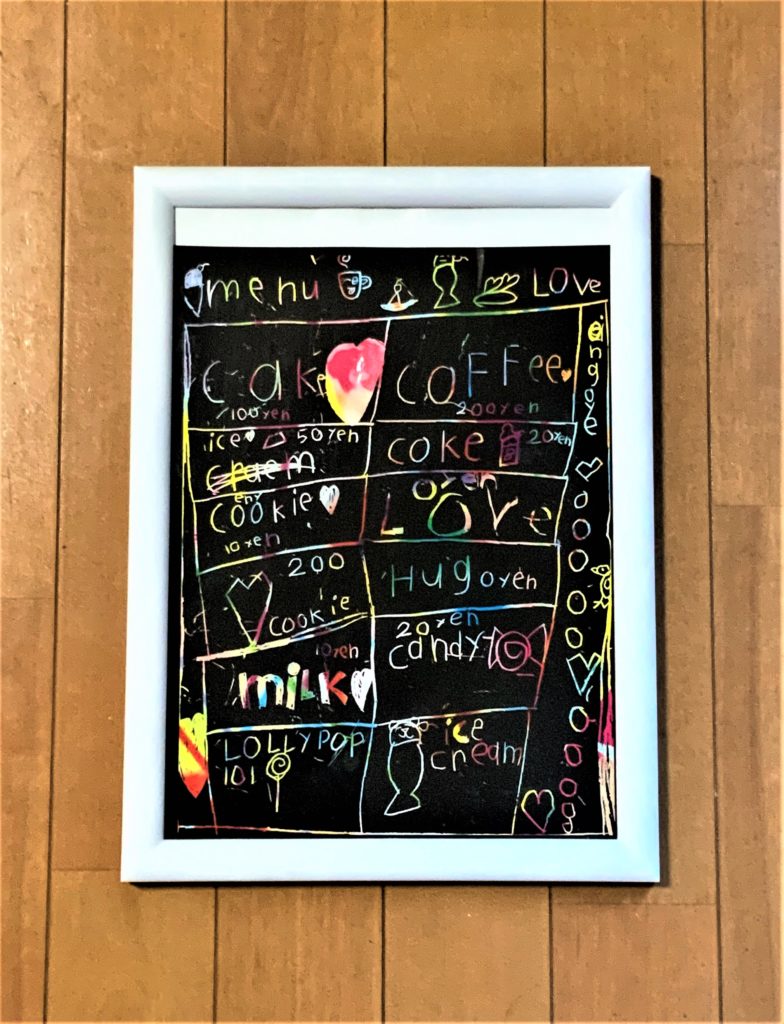 menu LOve
cake
100yen
COFFee
200yen
ice 50yen
craem
coke 20yen
cookie
10yen
0yen
LOVe
200
cookie
Hug 0yen
10yen
miLK
20yen
candy
LOLLYPOP
101
ice
cream
engoye